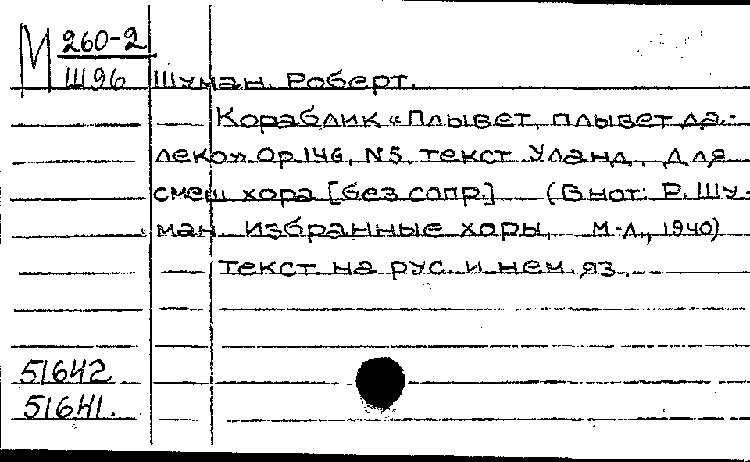 М 260-2
Ш96 Шуман. Роберт.
Кораблик «Плывет, плывет да-
леко». Op.146, N5. текст Уланд. Для
смеш хора [без сопр.] (В нот: Р. Шу-
ман. избранные хоры, м-л., 1940)
текст на рус. и нем. яз.
51642
51641.